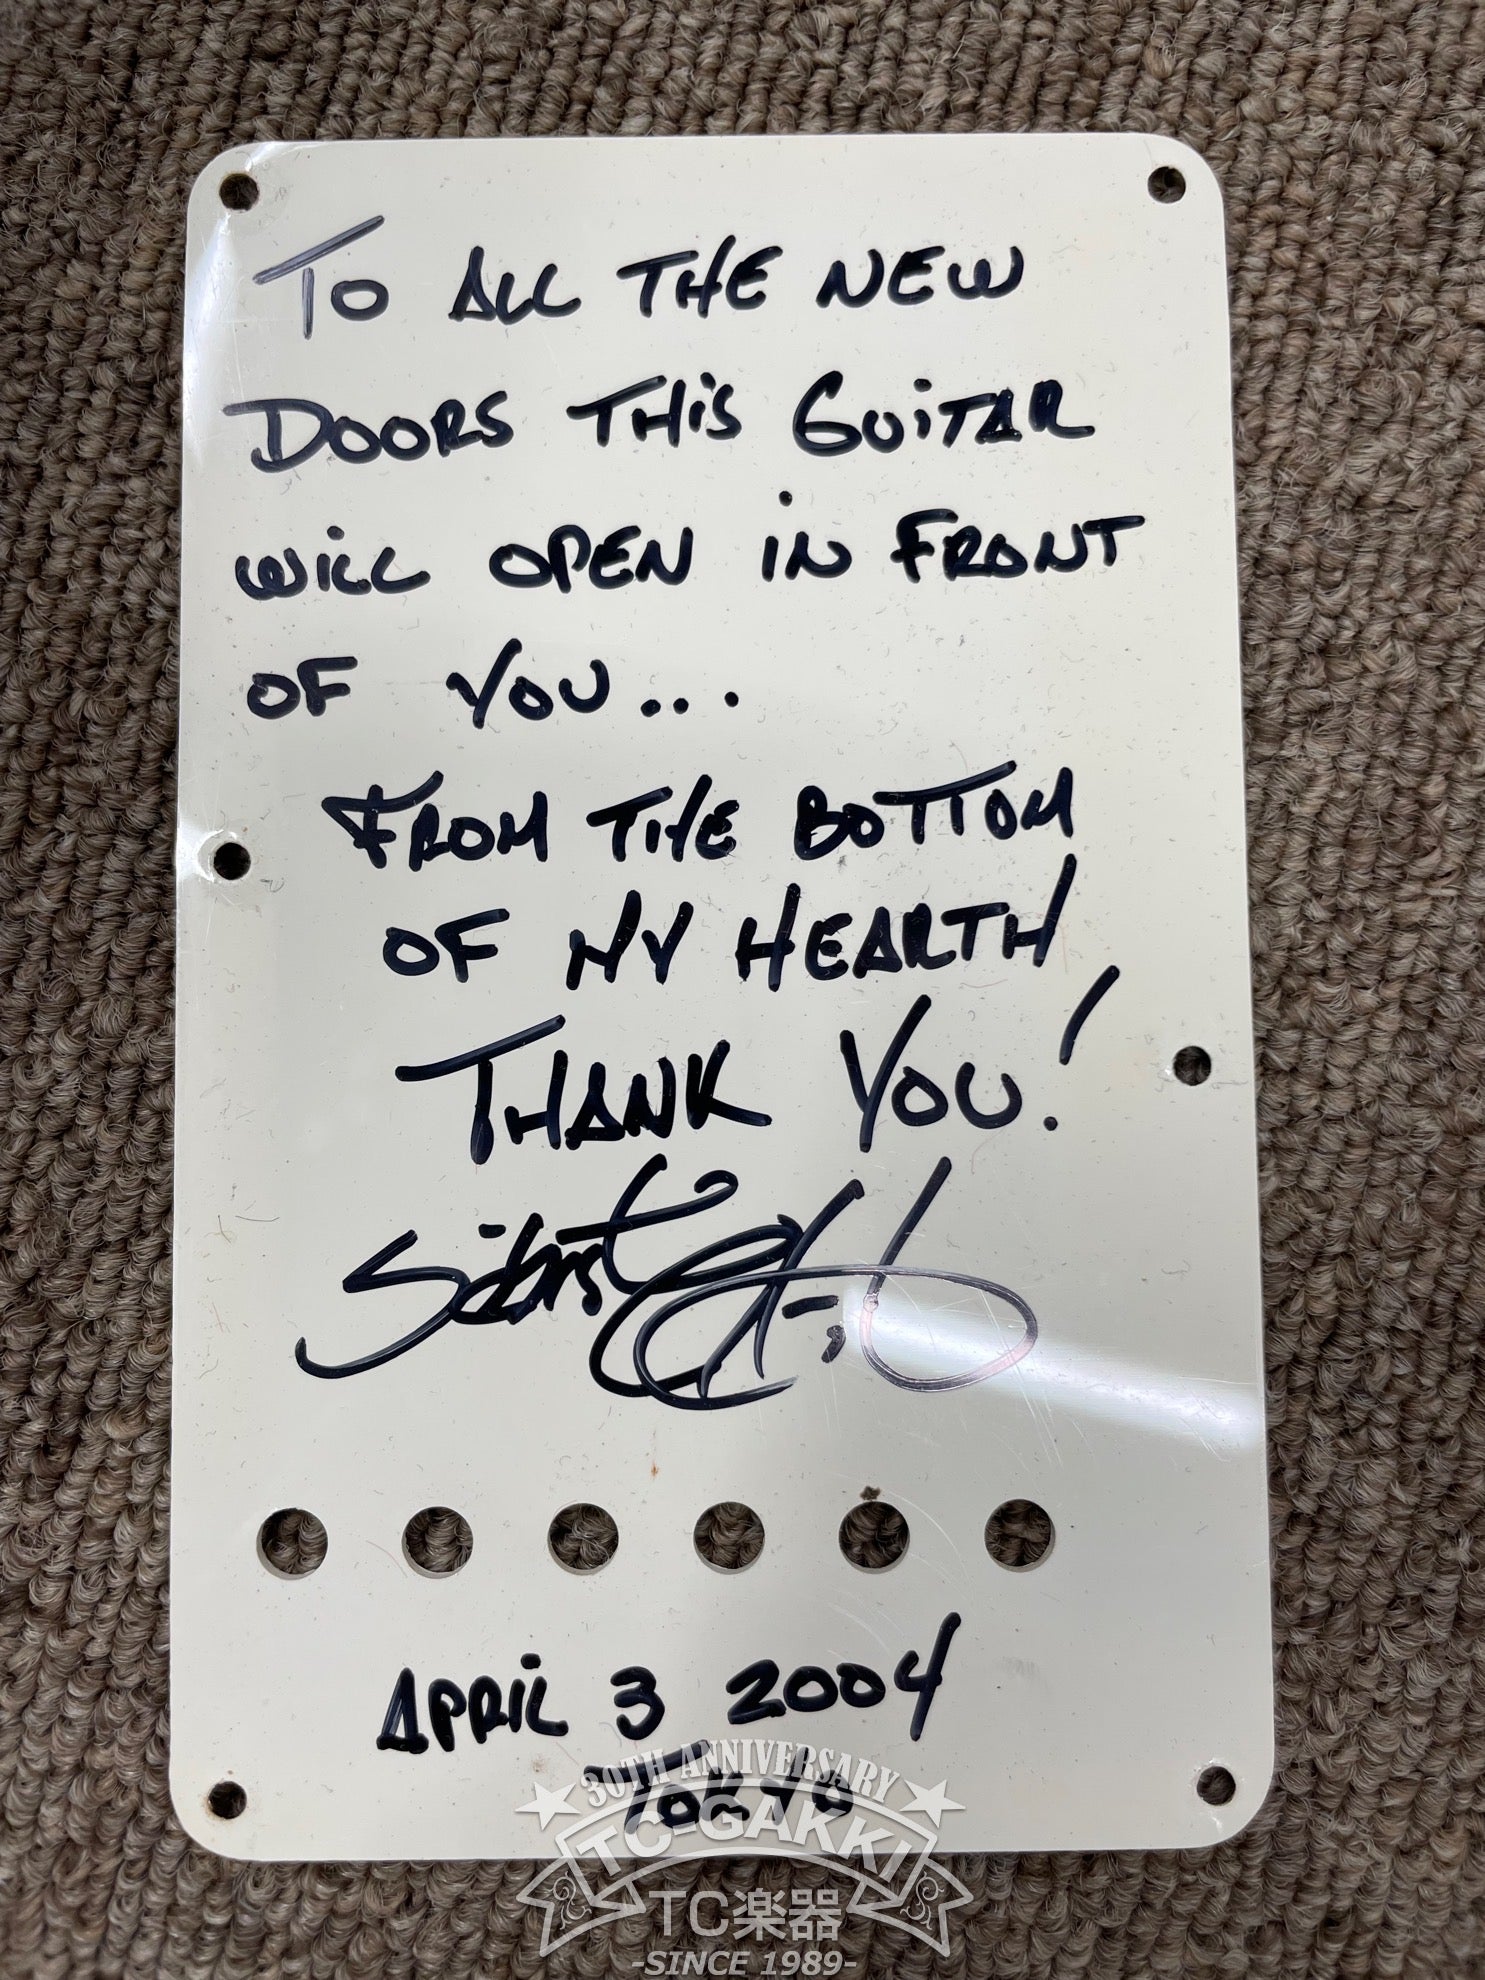 To ALL THE NEW
DOORS THiS GUiTAR
WiLL OPEN iN FRONT
OF YOU...
FROM THE BOTTOM
OF MY HEARTH
THANK YOU!
APRiL 3 2004
TOKYO
30TH ANNIVERSARY
TC-GAKKI
TC楽器
-SINCE 1989-